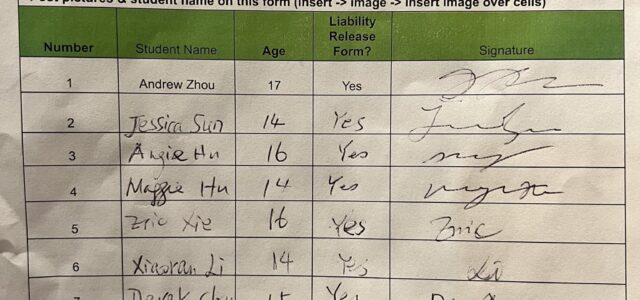 Post pictures & student name on this form (Insert -> Image -> Insert image over cells)
Number Student Name Age Liability Release Form? Signature
1 Andrew Zhou 17 Yes
2 Jessica Sun 14 Yes
3 Angie Hu 16 Yes
4 Maggie Hu 14 Yes
5 Eric Xie 16 Yes Eric
6 Xiaoran Li 14 Yes Li
7 Derek 15 Yes